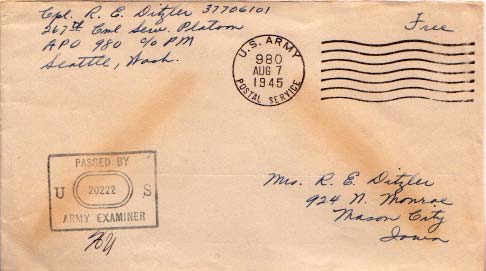 Cpl. R. E. Ditzler 37706101
267th Cml Serv. Platoon
APO 980 c/o PM
Seattle, Wash.
Free
U.S. ARMY
980
AUG 7
1945
POSTAL SERVICE
PASSED BY
U 20222 S
ARMY EXAMINER
Mrs. R. E. Ditzler
924 N. Monroe
Mason City
Iowa